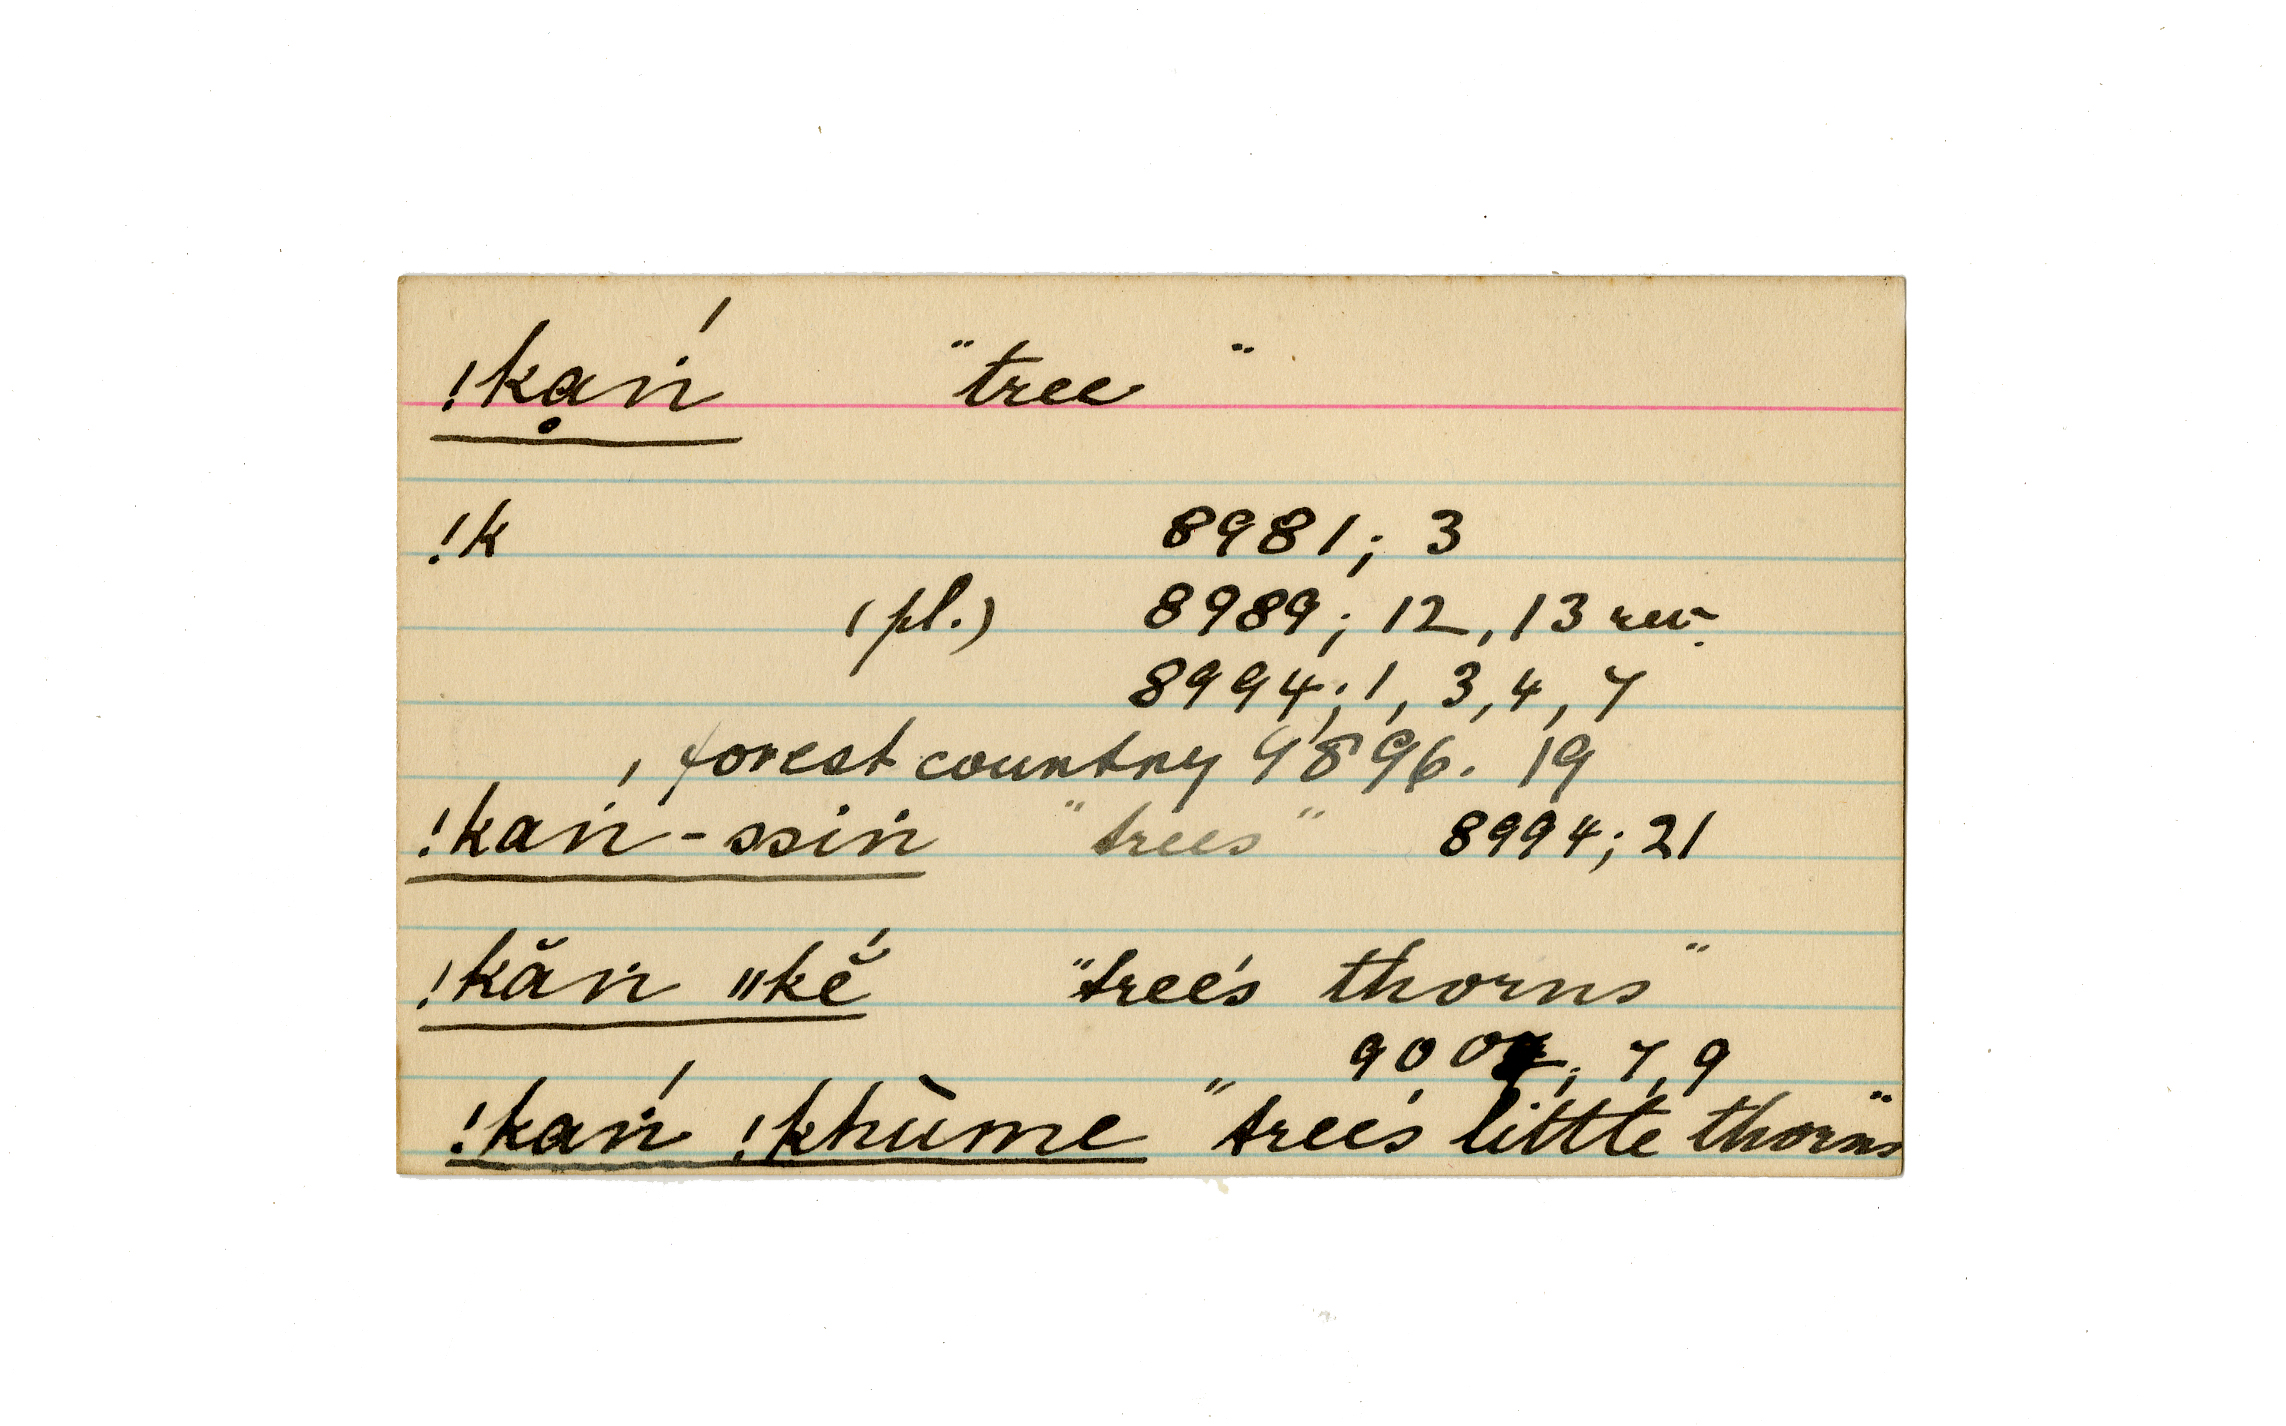 !kạṅ́ "tree"
!k 8981; 3
(pl.) 8989; 12, 13 rev.
8994; 1, 3, 4, 7
forest country 9896. 19
!kaṅ́-ssiṅ "trees" 8994; 21
!kăṅ ǁkĕ́ "tree's thorns"
7, 9
!kaṅ́ !khùme "tree's little thorns"